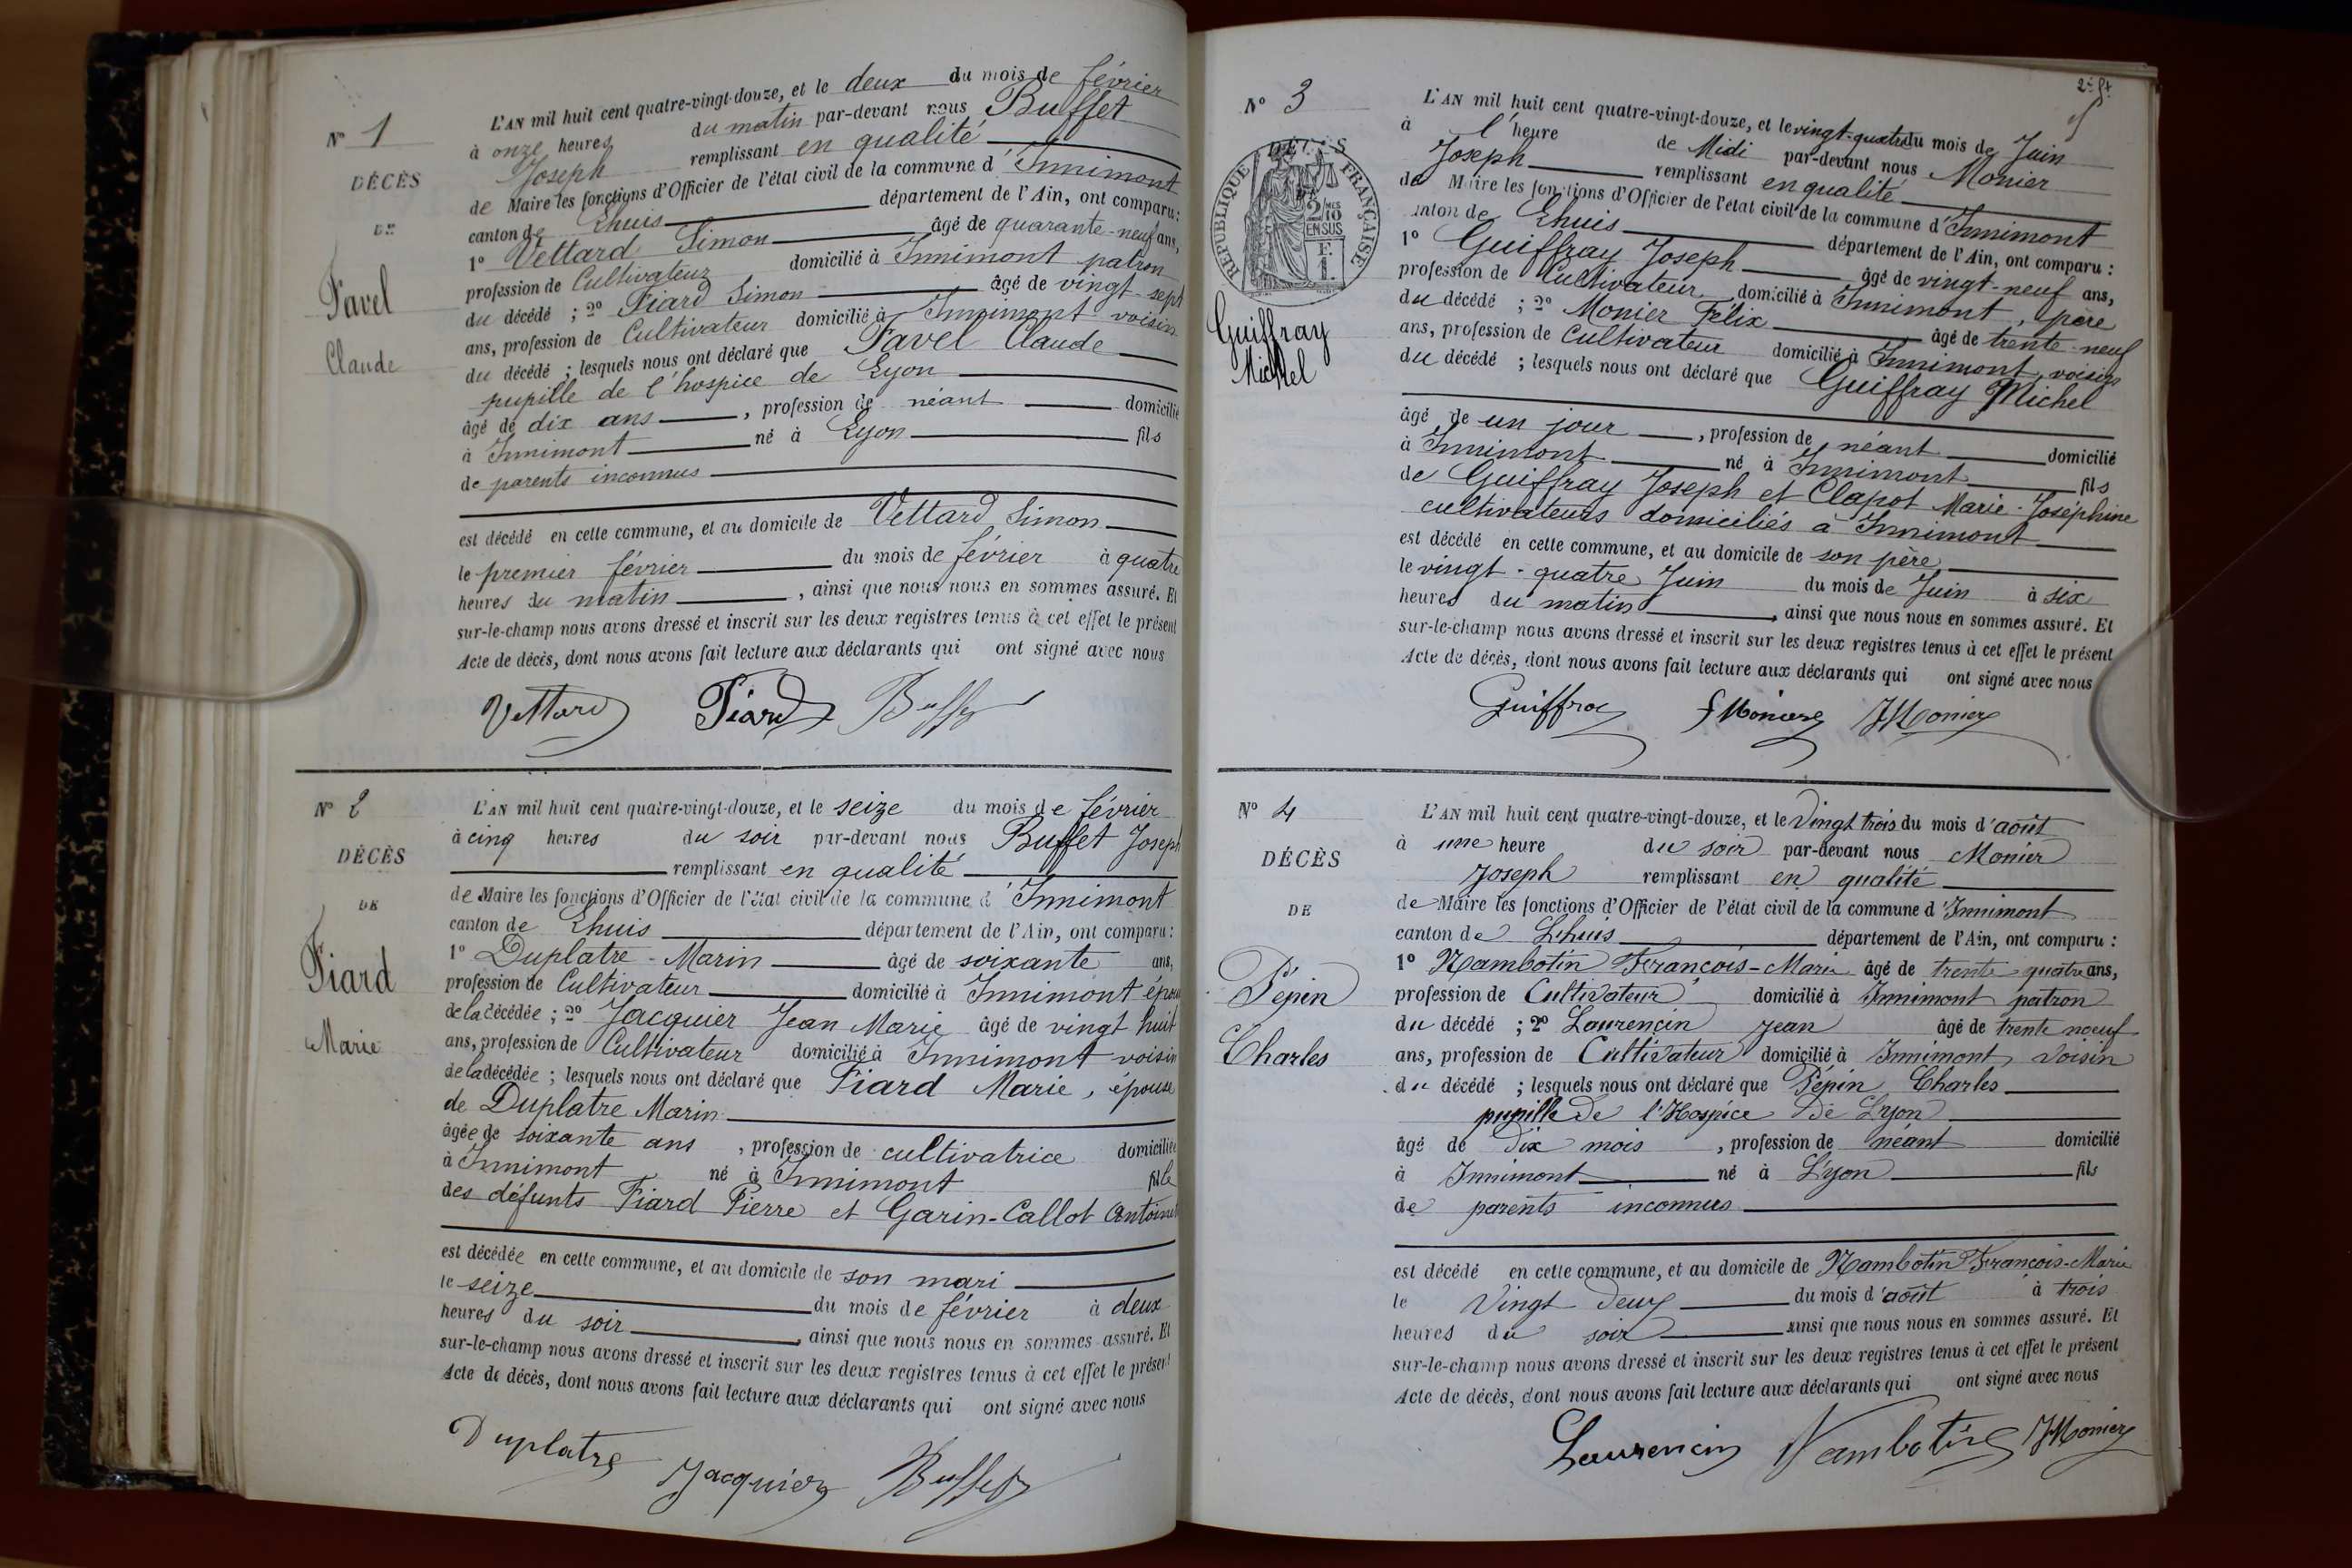 N° 1
DÉCÈS
DE
Favel
Claude
L'AN mil huit cent quatre-vingt-douze, et le deux du mois de février
à onze heures du matin par-devant nous Buffet
Joseph remplissant en qualité
de Maire les fonctions d'Officier de l'état civil de la commune d'Innimont
canton de Lhuis département de l'Ain, ont comparu :
1° Vettard Simon âgé de quarante-neuf ans,
profession de Cultivateur domicilié à Innimont patron
du décédé ; 2° Fiard Simon âgé de vingt-sept
ans, profession de Cultivateur domicilié à Innimont voisin
du décédé ; lesquels nous ont déclaré que Favel Claude
pupille de l'hospice de Lyon
âgé de dix ans, profession de néant domicilié
à Innimont né à Lyon fils
de parents inconnus
est décédé en cette commune, et au domicile de Vettard Simon
le premier février du mois de février à quatre
heures du matin, ainsi que nous nous en sommes assuré. Et
sur-le-champ nous avons dressé et inscrit sur les deux registres tenus à cet effet le présent
Acte de décès, dont nous avons fait lecture aux déclarants qui ont signé avec nous
Vettard Fiard Buffet
N° 2
DÉCÈS
DE
Fiard
Marie
L'AN mil huit cent quatre-vingt-douze, et le seize du mois de février
à cinq heures du soir par-devant nous Buffet Joseph
remplissant en qualité
de Maire les fonctions d'Officier de l'état civil de la commune d'Innimont
canton de Lhuis département de l'Ain, ont comparu :
1° Duplatre - Marin âgé de soixante ans,
profession de Cultivateur domicilié à Innimont époux
de la décédée ; 2° Jacquier Jean Marie âgé de vingt huit
ans, profession de Cultivateur domicilié à Innimont voisin
de la décédée ; lesquels nous ont déclaré que Fiard Marie, épouse
de Duplatre Marin
âgée de soixante ans, profession de cultivatrice domiciliée
à Innimont né à Innimont fille
des défunts Fiard Pierre et Garin-Callot
est décédée en cette commune, et au domicile de son mari
le seize du mois de février à deux
heures du soir, ainsi que nous nous en sommes assuré. Et
sur-le-champ nous avons dressé et inscrit sur les deux registres tenus à cet effet le présent
Acte de décès, dont nous avons fait lecture aux déclarants qui ont signé avec nous
Duplatre Jacquier Buffet
2e ft
5
N° 3
DÉCÈS
RÉPUBLIQUE FRANÇAISE
2/10 MES
EN SUS
F.
1.
Guiffray
Michel
L'AN mil huit cent quatre-vingt-douze, et le vingt-quatre du mois de Juin
à l'heure de Midi par-devant nous Monier
Joseph remplissant en qualité
de Maire les fonctions d'Officier de l'état civil de la commune d'Innimont
canton de Lhuis département de l'Ain, ont comparu :
1° Guiffray Joseph âgé de vingt-neuf ans,
profession de Cultivateur domicilié à Innimont, père
du décédé ; 2° Monier Félix âgé de trente-neuf
ans, profession de Cultivateur domicilié à Innimont, voisin
du décédé ; lesquels nous ont déclaré que Guiffray Michel
âgé de un jour, profession de néant domicilié
à Innimont né à Innimont fils
de Guiffray Joseph et Clapot Marie-Joséphine
cultivateurs domiciliés à Innimont
est décédé en cette commune, et au domicile de son père
le vingt-quatre Juin du mois de Juin à six
heures du matin, ainsi que nous nous en sommes assuré. Et
sur-le-champ nous avons dressé et inscrit sur les deux registres tenus à cet effet le présent
Acte de décès, dont nous avons fait lecture aux déclarants qui ont signé avec nous
Guiffray f Monier J Monier
N° 4
DÉCÈS
DE
Pépin
Charles
L'AN mil huit cent quatre-vingt-douze, et le Vingt trois du mois d'août
à une heure du soir par-devant nous Monier
Joseph remplissant en qualité
de Maire les fonctions d'Officier de l'état civil de la commune d'Innimont
canton de Lhuis département de l'Ain, ont comparu :
1° Nambotin François-Marie âgé de trente quatre ans,
profession de Cultivateur domicilié à Innimont patron
du décédé ; 2° Laurencin Jean âgé de trente nœuf
ans, profession de Cultivateur domicilié à Innimont, voisin
du décédé ; lesquels nous ont déclaré que Pépin Charles
pupille de l'Hospice de Lyon
âgé de dix mois, profession de néant domicilié
à Innimont né à Lyon fils
de parents inconnus
est décédé en cette commune, et au domicile de Nambotin François-Marie
le Vingt deux du mois d'août à trois
heures du soir ainsi que nous nous en sommes assuré. Et
sur-le-champ nous avons dressé et inscrit sur les deux registres tenus à cet effet le présent
Acte de décès, dont nous avons fait lecture aux déclarants qui ont signé avec nous
Laurencin Nambotin J Monier